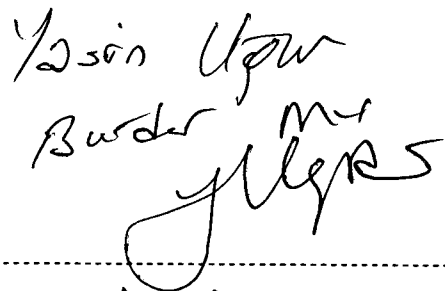 Yasin Uğur
Burdur Mv